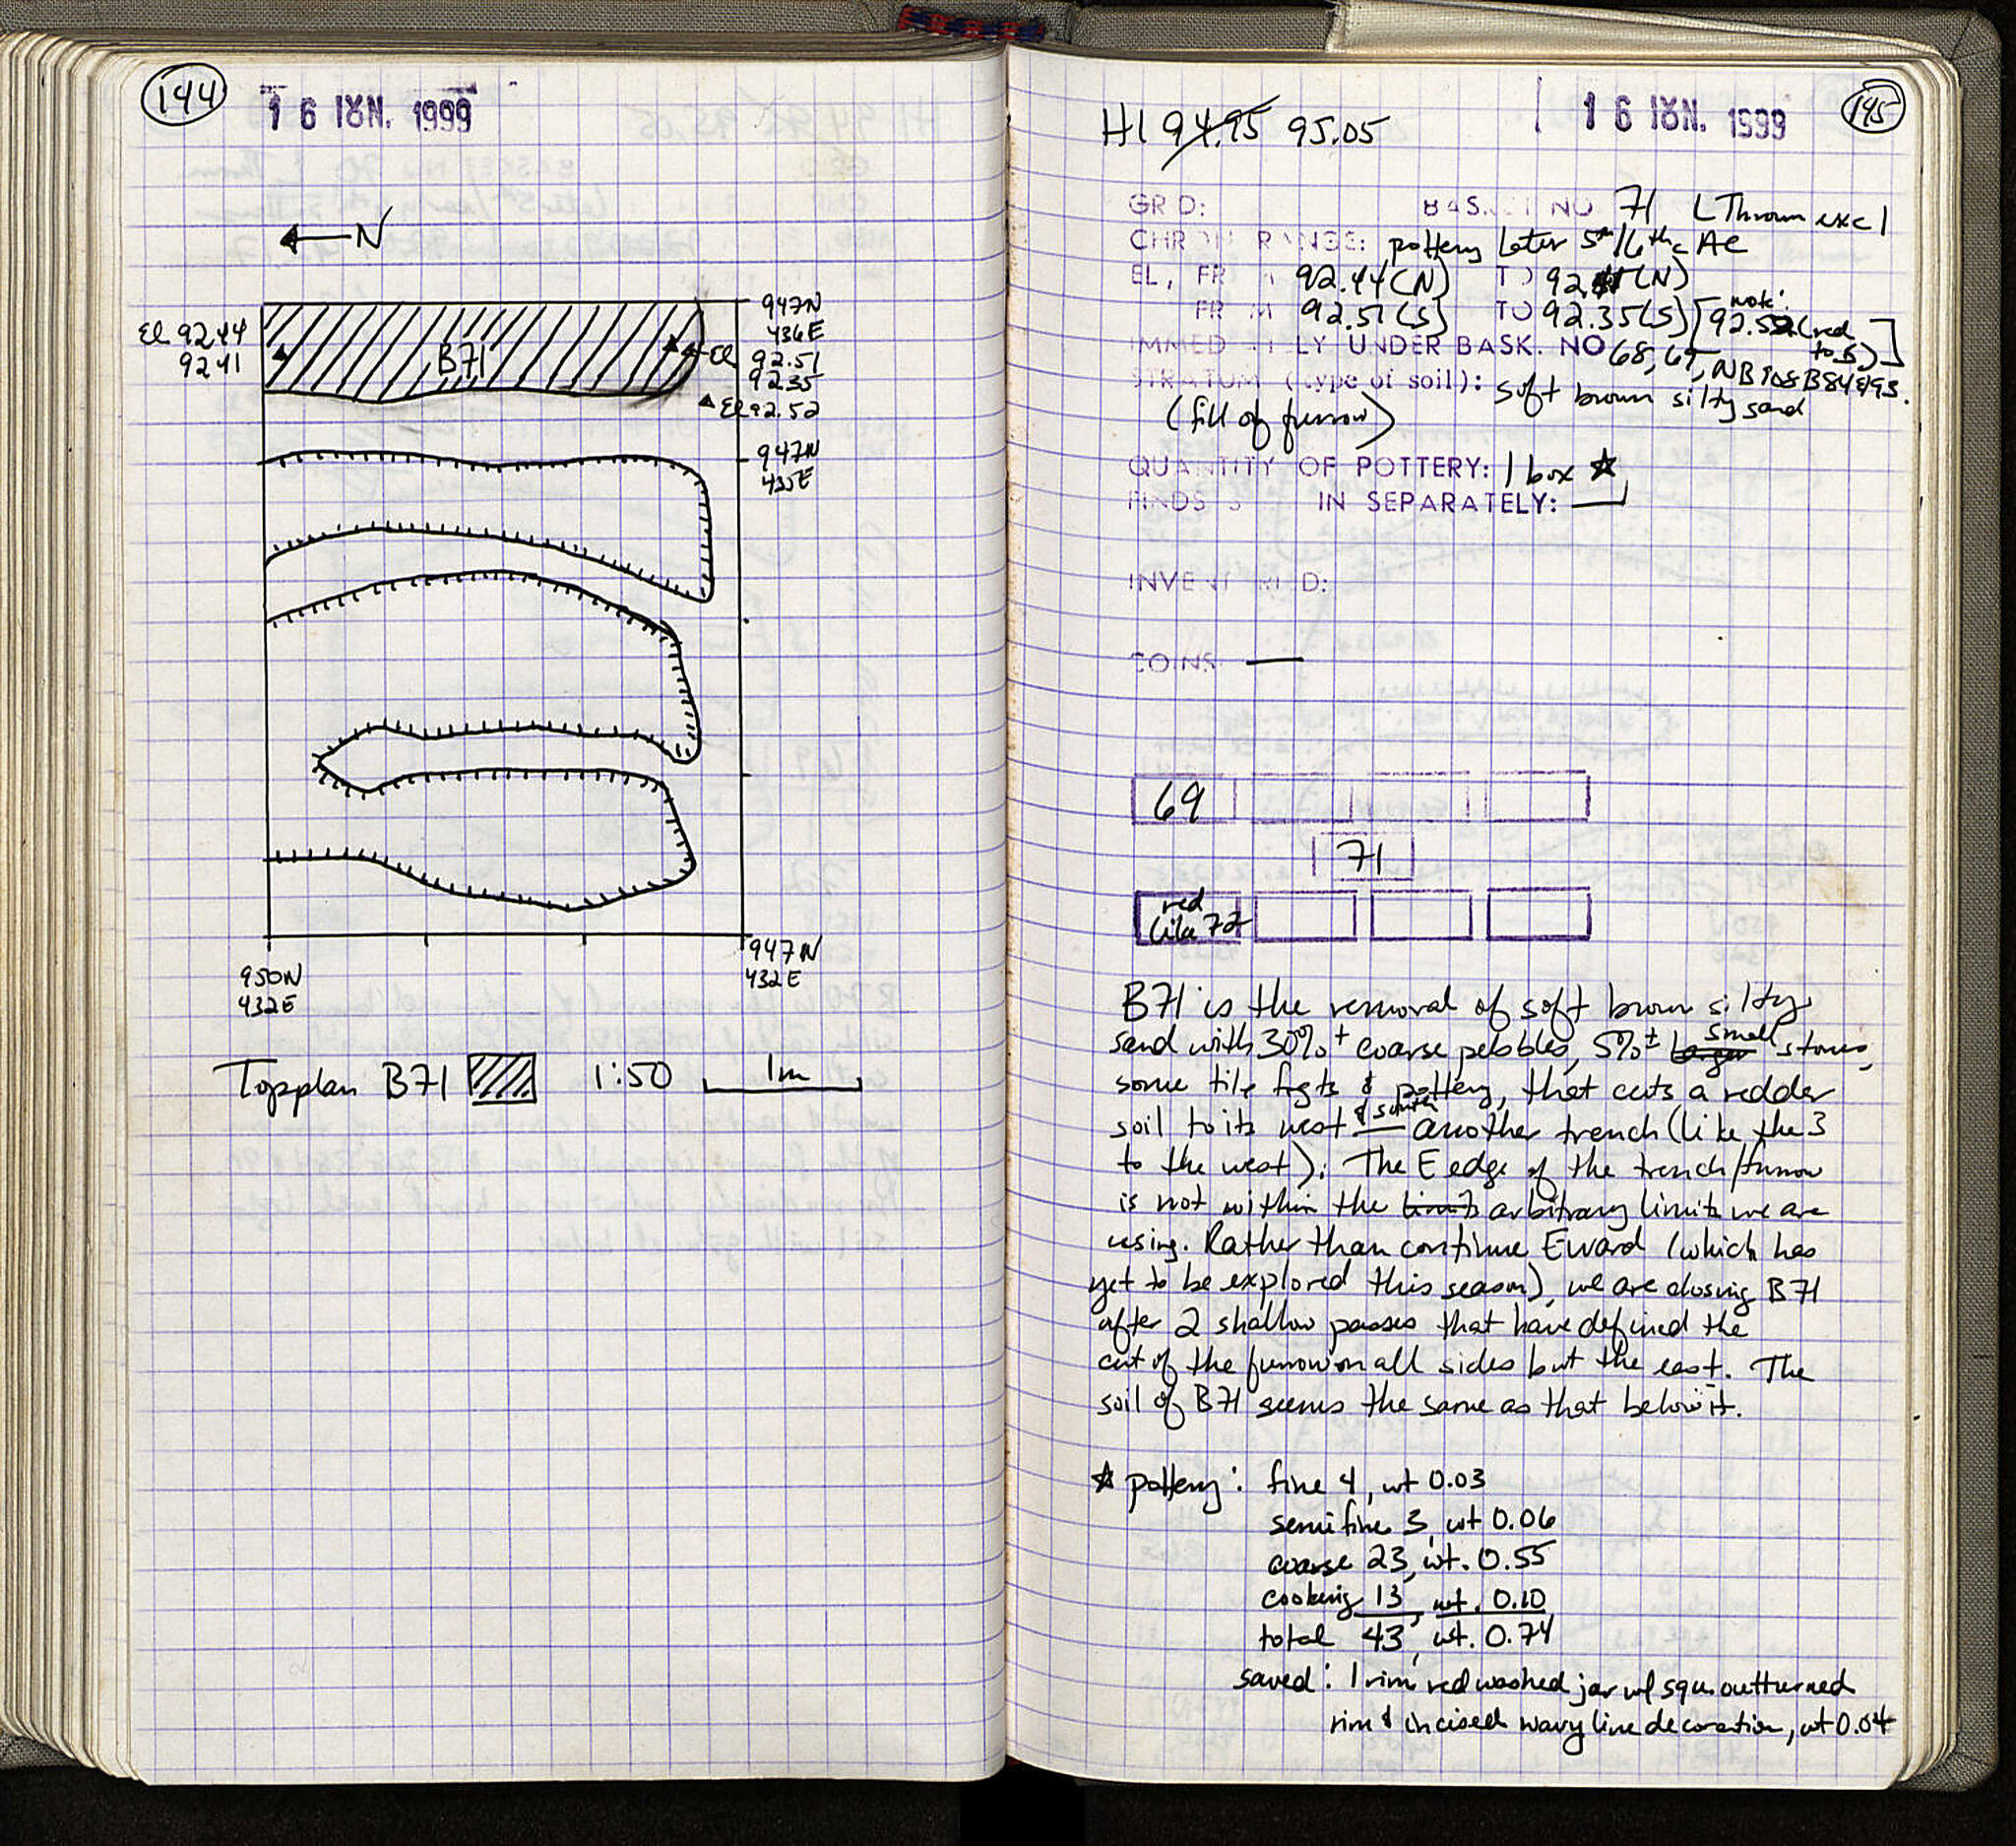 144
16 ΙΟΥΝ. 1999
N
El 92.44
92.41
B71
947N
436E
El 92.51
92.35
El 92.52
947N
435E
947N
432E
950N
432E
Topplan B71 1:50 1m
145
16 ΙΟΥΝ. 1999
H1 94.95 95.05
GRID: BASKET NO 71 (Thrown exc)
CHRON RANGE: pottery later 5th/6th c AC
EL, FROM 92.44(N) TO 92.41(N)
FROM 92.51(S) TO 92.35(S) [note: 92.52 (red to S)]
IMMEDIATELY UNDER BASK. NO 68, 69, NB 908 B84 & 93.
STRATUM (type of soil): soft brown silty sand
(fill of furrow)
QUANTITY OF POTTERY: 1 box ☆
FINDS IN SEPARATELY: —
INVENTORIED:
COINS —
69
71
red
like 72
B71 is the removal of soft brown silty
sand with 30%+ coarse pebbles, 5%± larger small stones,
some tile fgts & pottery, that cuts a redder
soil to its west & south another trench (like the 3
to the west). The E edge of the trench/furrow
is not within the limits arbitrary limits we are
using. Rather than continue Eward (which has
yet to be explored this season), we are closing B71
after 2 shallow passes that have defined the
cut of the furrow on all sides but the east. The
soil of B71 seems the same as that below it.
☆ pottery: fine 4, wt 0.03
semi fine 3, wt 0.06
coarse 23, wt. 0.55
cooking 13, wt. 0.10
total 43, wt. 0.74
saved: 1 rim red washed jar w/ squ. outturned
rim & incised wavy line decoration, wt 0.04